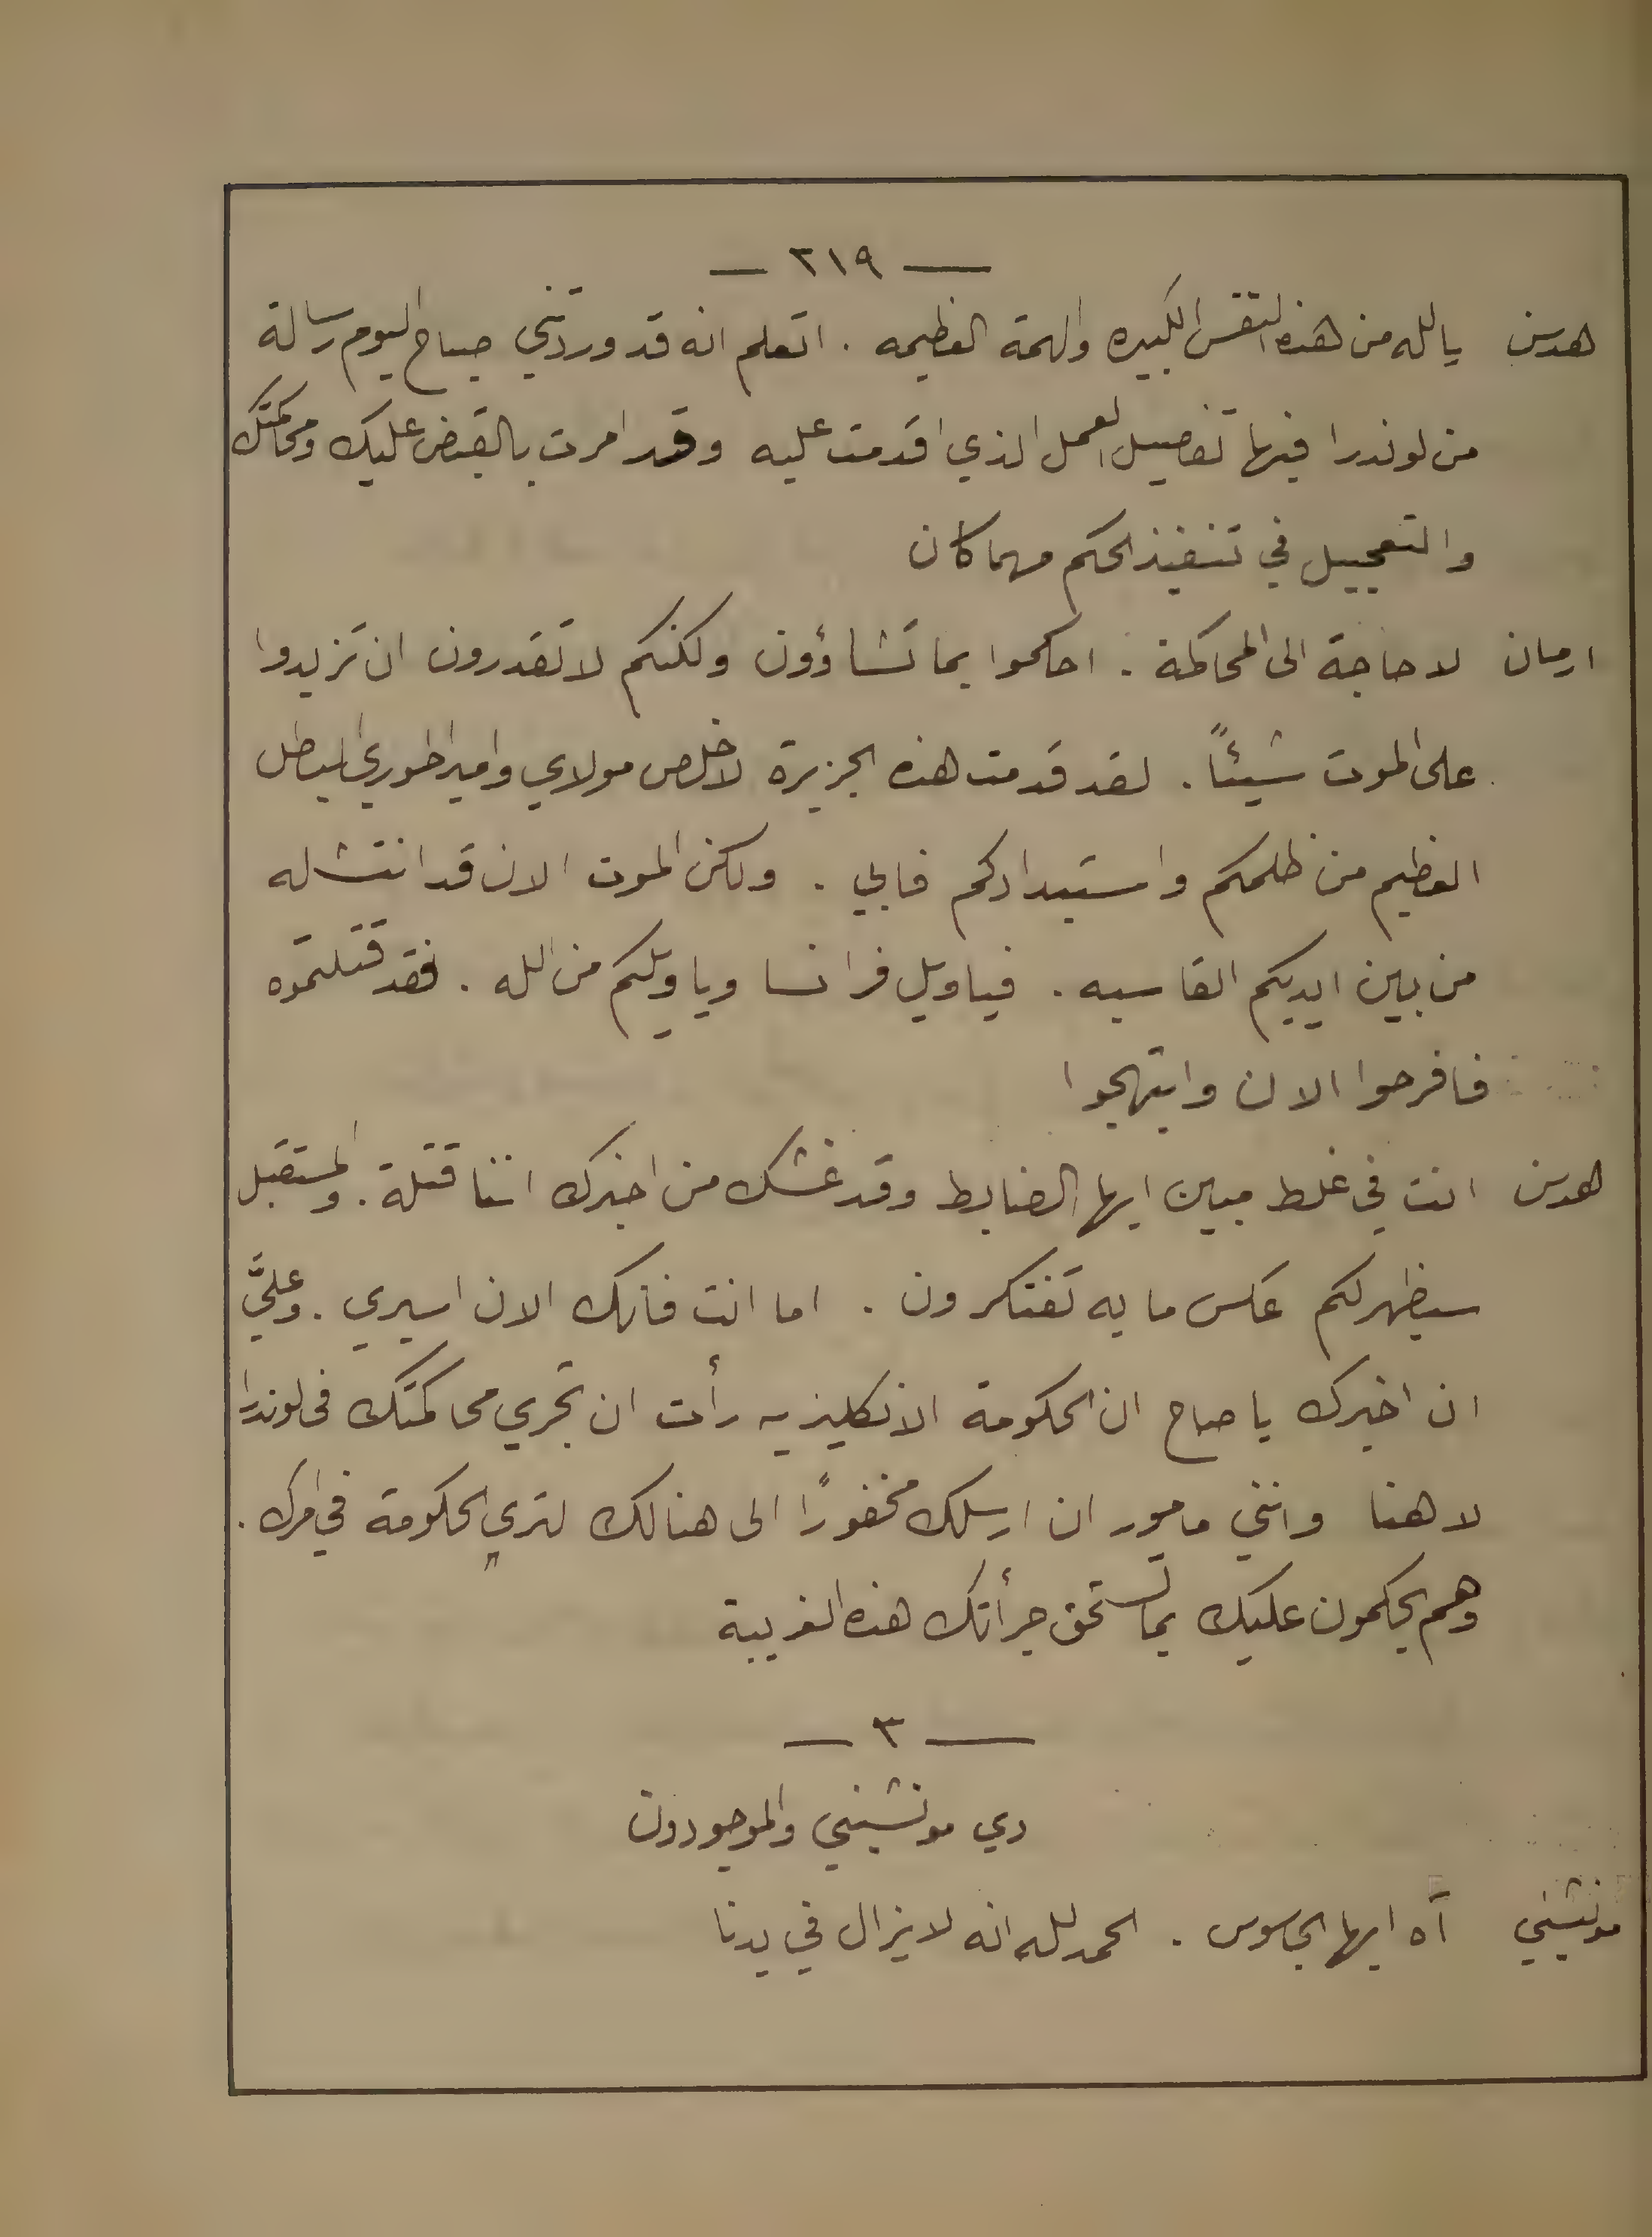 — ٣١٩ —
هدسن يالله من هذه النفس الكبيره والهمة العظيمه . اتعلم انه قد وردتني صباح اليوم رسالة
من لوندرا فيها تفصيل العمل الذي اقدمت عليه وقد امرت بالقبض عليك ومحاكمتك
والتعجيل في تنفيذ الحكم مهما كان
ارمان لا حاجة الى المحاكمة . احكموا بما تشاؤون ولكنكم لا تقدرون ان تزيدوا
على الموت شيئاً . لقد قدمت هذه الجزيرة لاخلص مولاي وامبراطوري البطل
العظيم من ظلمكم واستبدادكم فابي . ولكن الموت الان قد انتشله
من بين ايديكم القاسيه . فياويل فرانسا وياويلكم من الله . فقد قتلتموه
فافرحوا الان وابتهجوا
هدسن انت في غلط مبين ايها الضابط وقد غشك من اخبرك اننا قتلة . والمستقبل
سيظهر لكم عكس ما به تفتكرون . اما انت فانك الان اسيري . وعليَّ
ان اخبرك ياصاح ان الحكومة الانكليزيه رأت ان تجري محاكمتك في لوندرا
لا هنا وانني مامور ان ارسلك مخفورًا الى هنالك لترى الحكومة في امرك .
وهم يحكمون عليك بما تستحق جرأتك هذه الغريبة
— ٣ —
دي مونتشيني والموجودون
مونتشيني آه ايها الجاسوس . الحمد لله انه لا يزال في يدنا